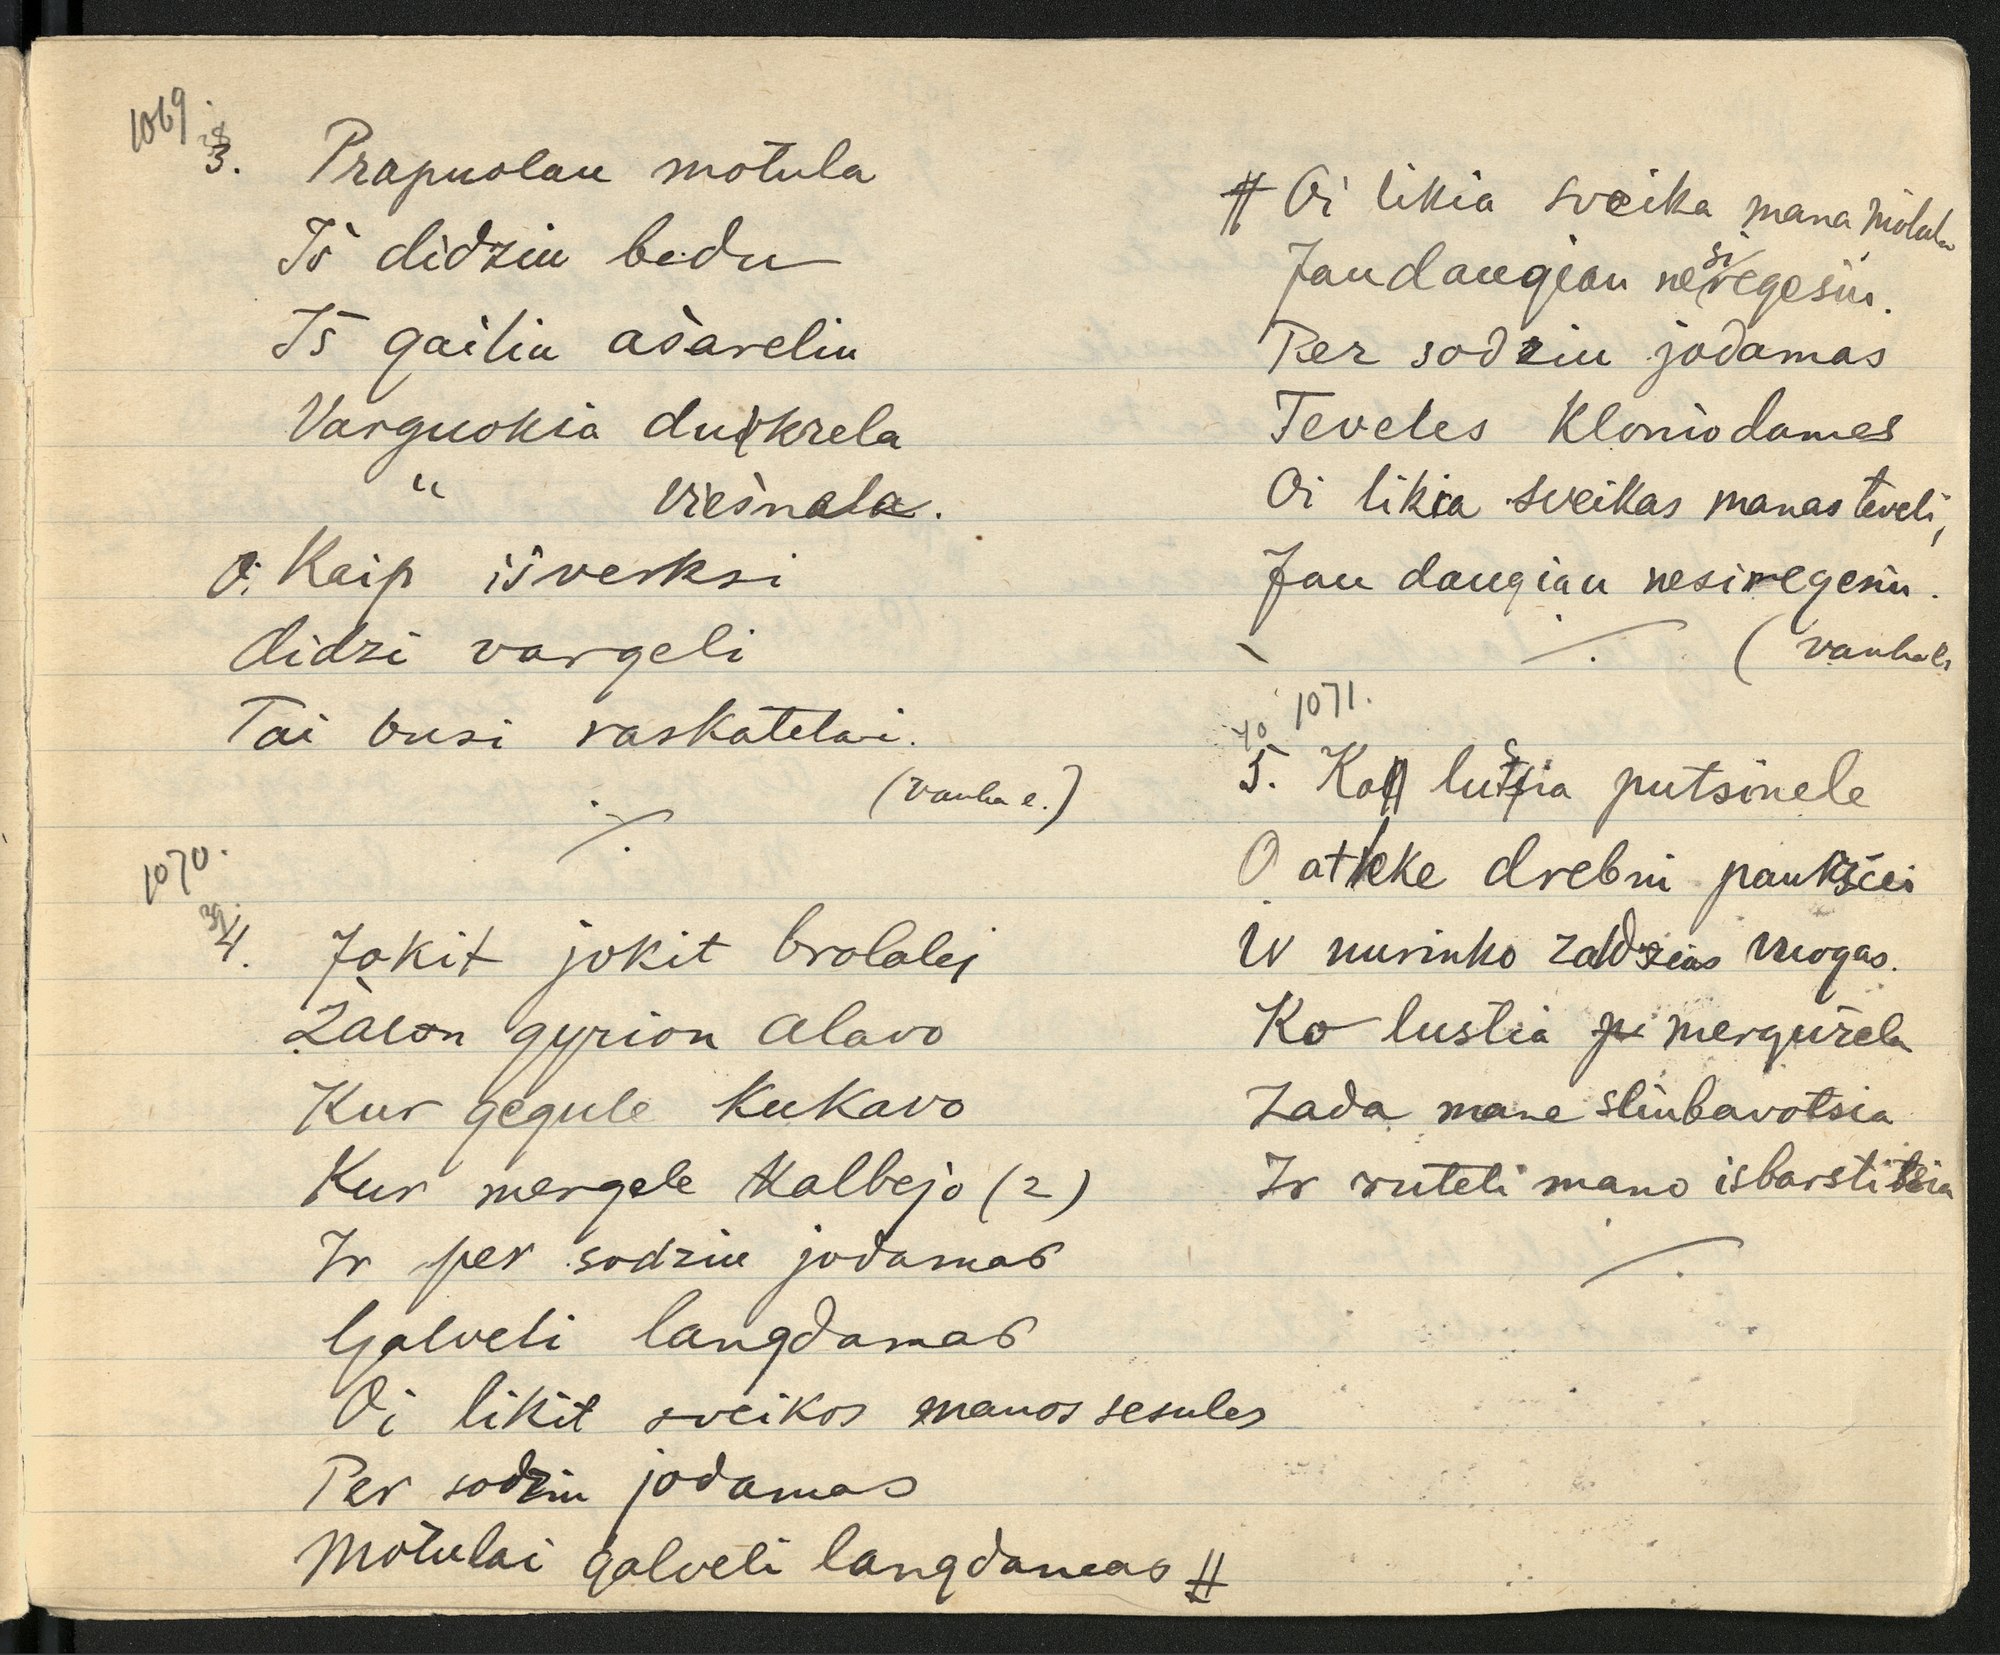 1069.
38
3. Prapuolau motula
Iš didziu bedu
Iš gailiu ašareliu
Varguokia dukrela
" viešnela.
Oi Kaip išverksi
didzi vargeli
Tai busi raskatelai.
(vanha e.)
1070.
39
4. Jokit jokit brolalej
Žalon gyrion alavo
Kur gegule kukavo
Kur mergele kalbejo (2)
Ir per sodziu jodamas
Galveli langdamas
Oi likit sveikos manos sesules
Per sodziu jodamas
Motulai galveli langdamas #
# Oi likia sveika mana motula
Jau daugiau nesiregesiu.
Per sodziu jodamas
Teveles kloniodames
Oi likia sveikas manas teveli,
Jau daugiau nesiregesiu.
(vanha
40 1071.
5. Ko lustia putsinele
O atleke drebni paukščei
Ir nurinko zaldzias vuogas.
Ko lustia mergužela
Zada mane sliubavotsia
Ir ruteli mano isbarstitsia